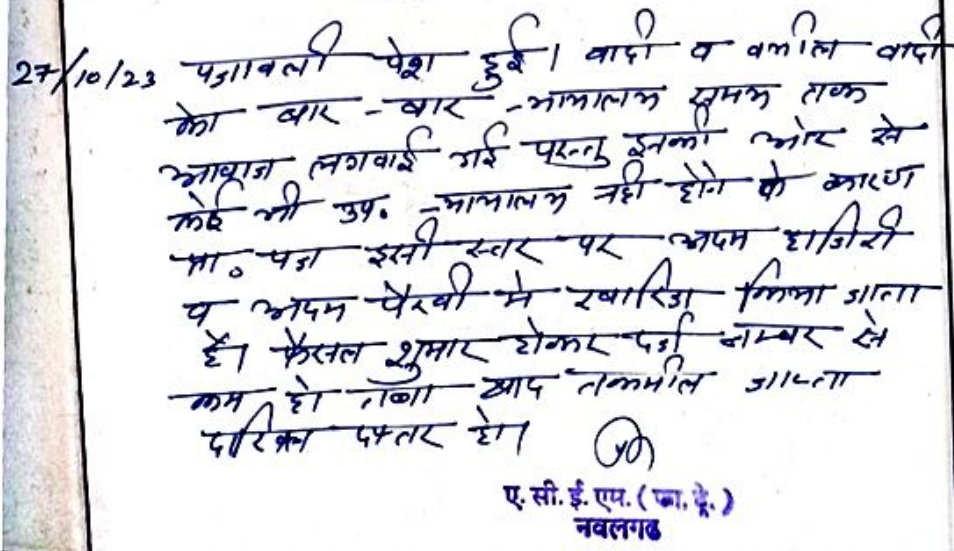 27/10/23 पत्रावली पेश हुई। वादी व वकील वादी
को बार-बार न्यायालय समय तक
आवाज लगवाई गई परन्तु इनकी ओर से
कोई भी उप. न्यायालय नही होने के कारण
प्रा. पत्र इसी स्तर पर अदम हाजिरी
व अदम पैरवी मे खारिज किया जाता
है। फैसल शुमार होकर दर्ज नम्बर से
कम हो तथा बाद तकमील जाप्ता
दाखिल दफ्तर हो।
ए. सी. ई. एम. ( फा. ट्रे. )
नवलगढ